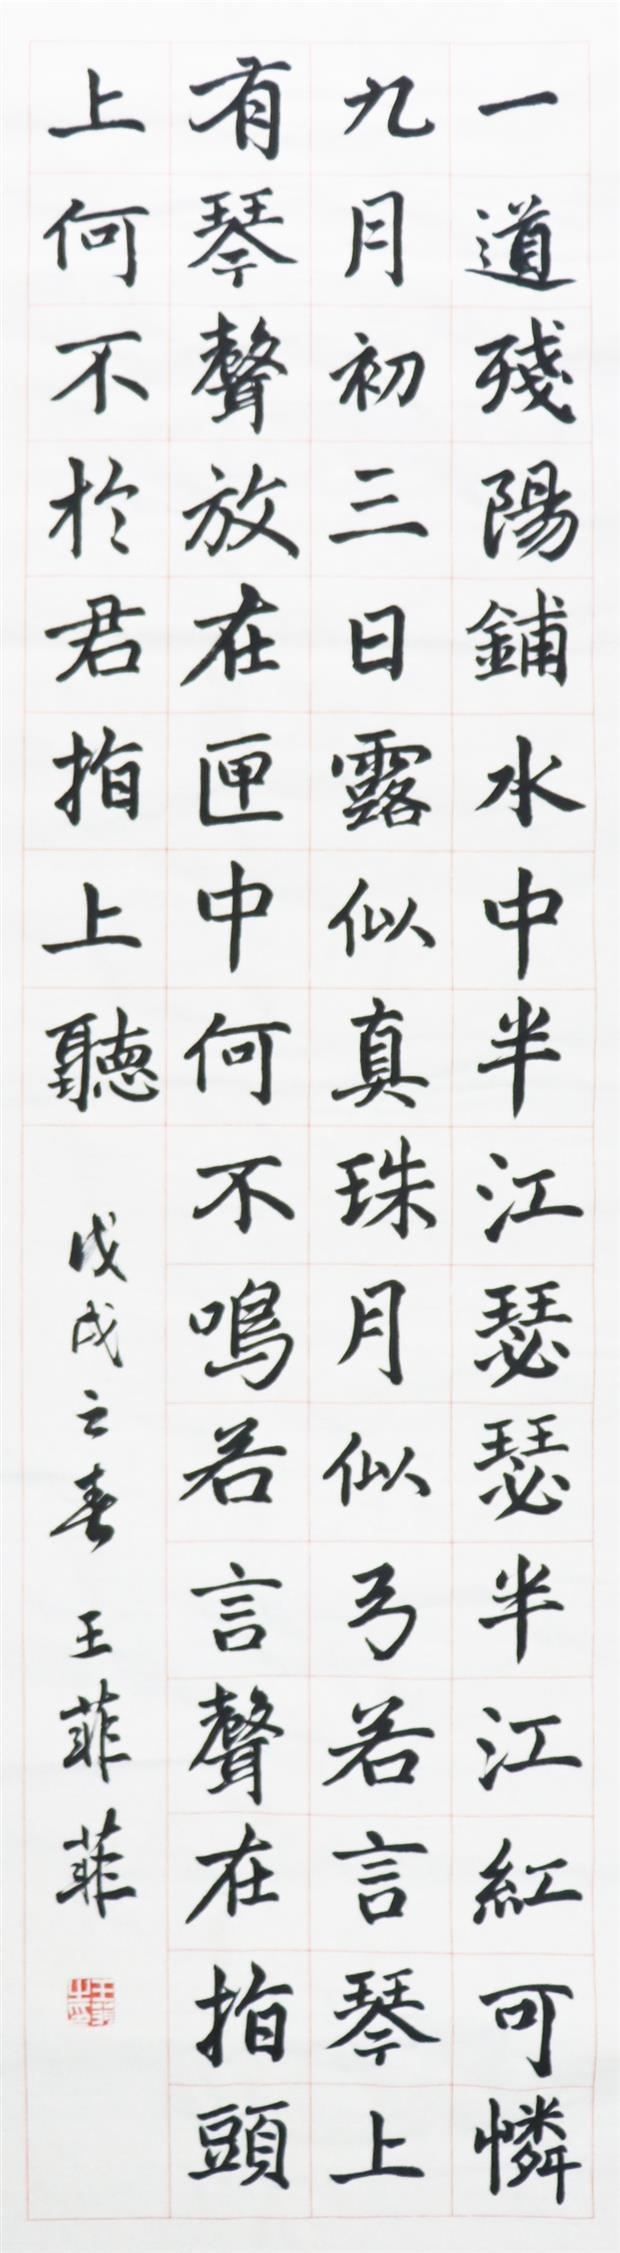 一道殘陽鋪水中半江瑟瑟半江紅可憐
九月初三日露似真珠月似弓若言琴上
有琴聲放在匣中何不鳴若言聲在指頭
上何不於君指上聽
戊戌之春 王菲菲